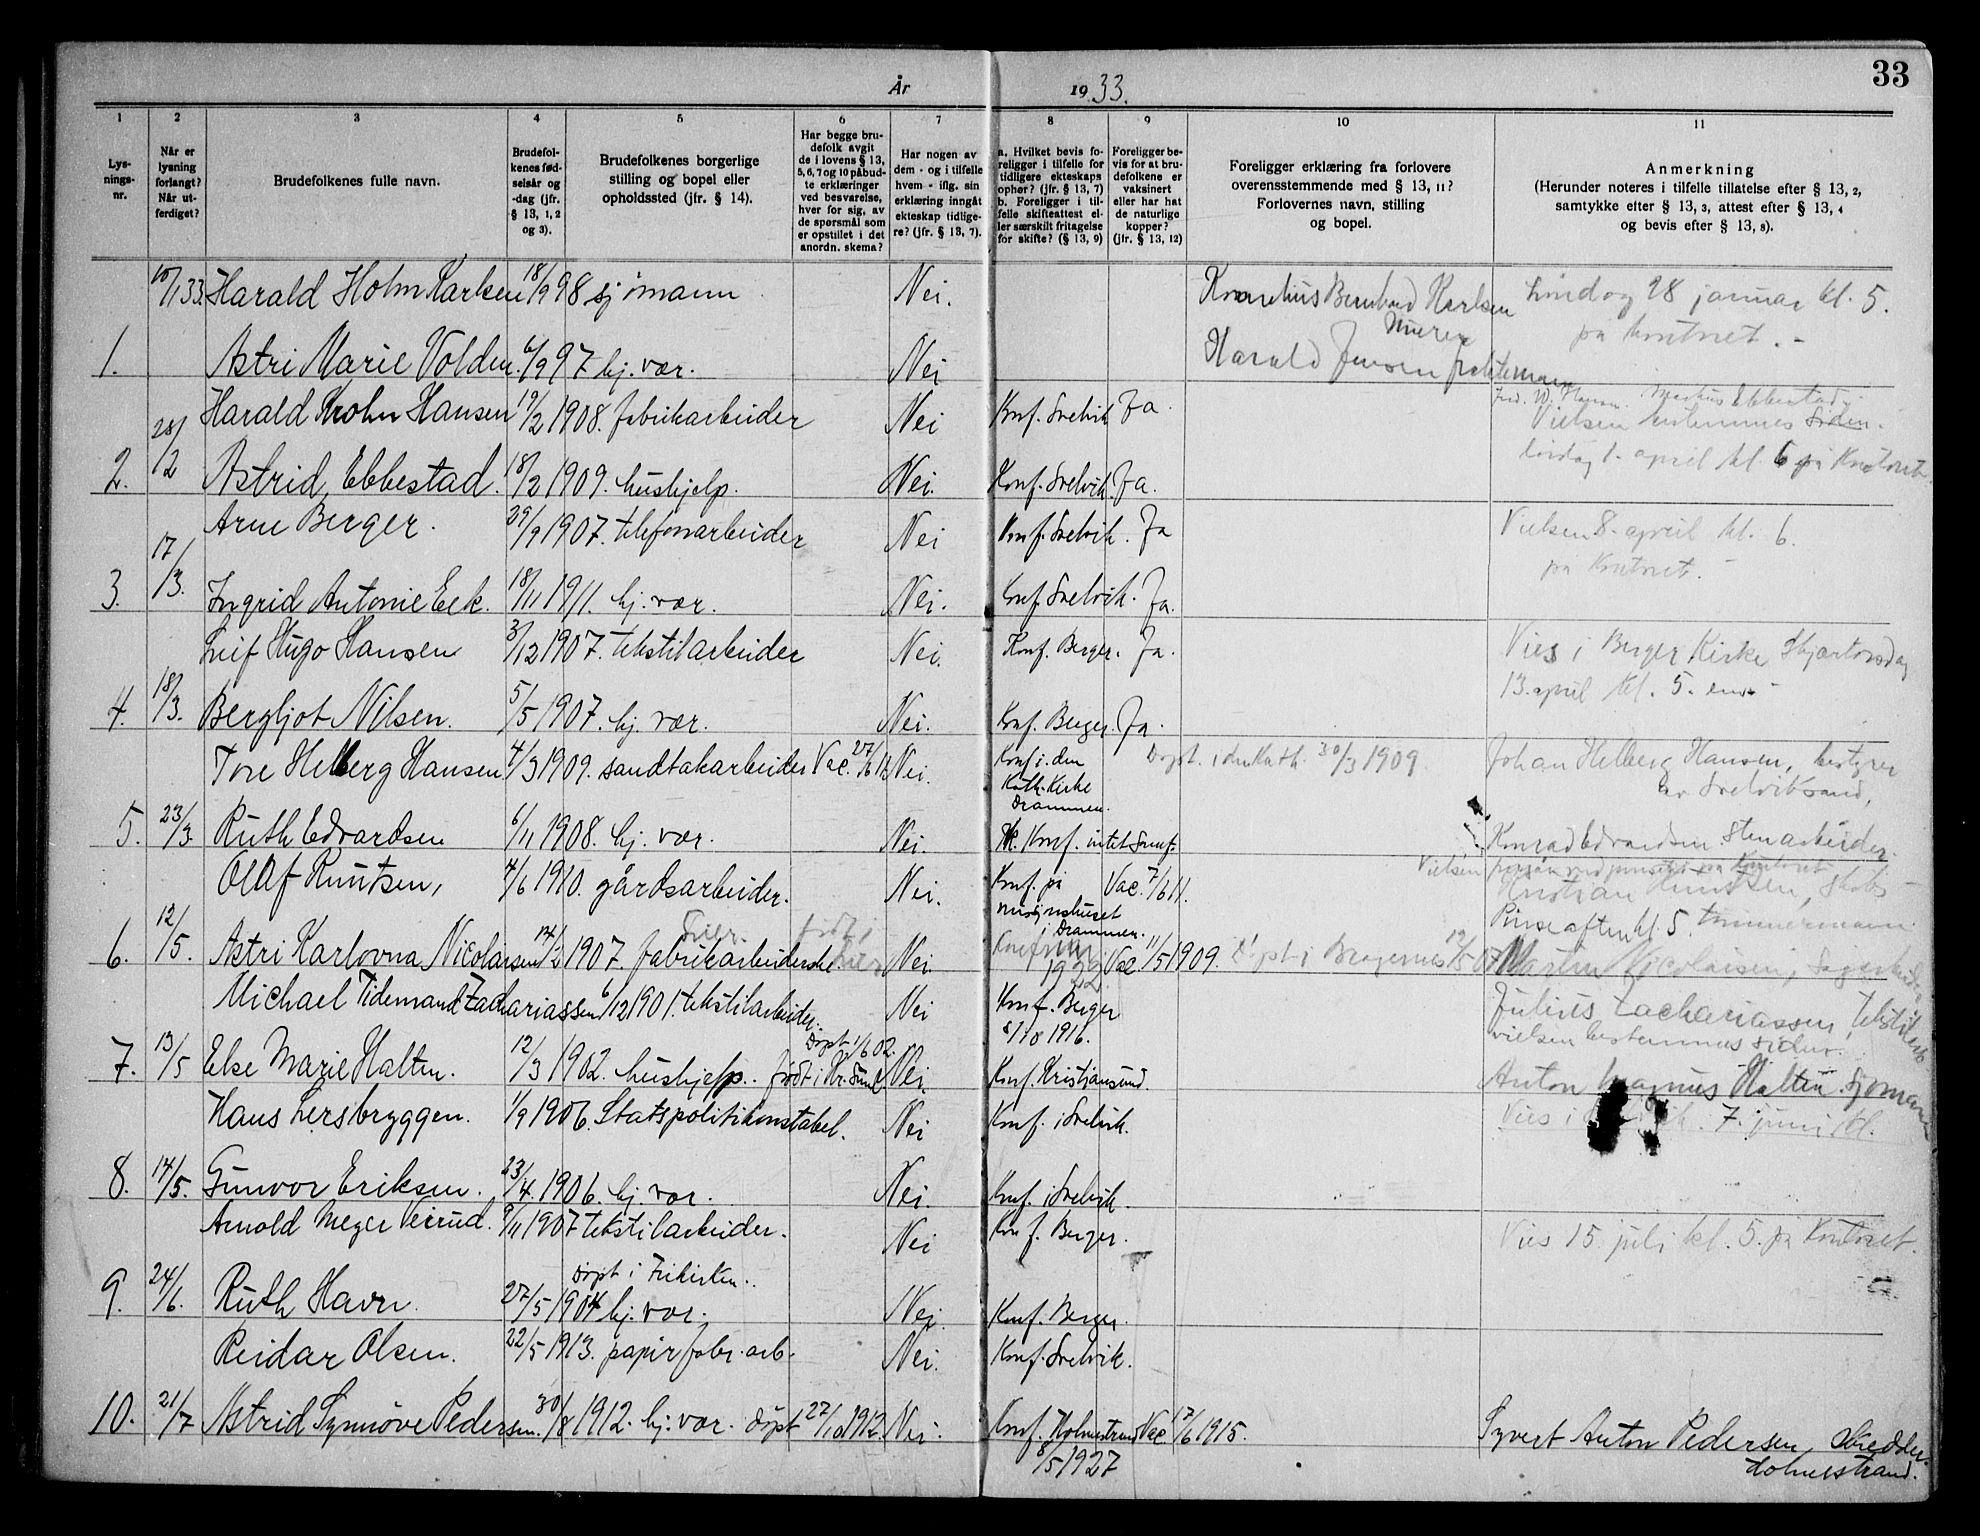 33
År 1933.
1 2 3 4 5 6 7 8 9 10 11
Lys-
nings-
nr.
Når er
lysning
forlangt?
Når ut-
ferdiget?
Brudefolkenes fulle navn.
Brudefol-
kenes fød-
selsår og
-dag (jfr.
§ 13, 1, 2
og 3).
Brudefolkenes borgerlige
stilling og bopel eller
opholdssted (jfr. § 14).
Har begge bru-
defolk avgit
de i lovens § 13,
5, 6, 7 og 10 påbud-
te erklæringer
ved besvarelse,
hver for sig, av
de spørsmål som
er opstillet i det
anordn. skema?
Har nogen av
dem - og i tilfelle
hvem - iflg. sin
erklæring inngåt
ekteskap tidlige-
re? (jfr. § 13, 7).
a. Hvilket bevis fo-
religger i tilfelle for
tidligere ekteskaps
ophør? (jfr. § 13, 7)
b. Foreligger i til-
felle skifteattest el-
ler særskilt fritagelse
for skifte? (§ 13, 9)
Foreligger be-
vis for at bru-
defolkene er
vaksinert
eller har hat
de naturlige
kopper?
(jfr. § 13, 12)
Foreligger erklæring fra forlovere
overensstemmende med § 13, 11?
Forlovernes navn, stilling
og bopel.
Anmerkning
(Herunder noteres i tilfelle tillatelse efter § 13, 2,
samtykke efter § 13, 3, attest efter § 13, 4
og bevis efter § 13, 8).
10/1 33. Harald Holm Karlsen 18/9 98 sjømann Nei. Kornelius Bernhard Karlsen Lördag 28 januar kl. 5.
Murer på kontoret. -
1. Astri Marie Volden. 6/9 97 hj. vær. Nei Harald Jensen
Harald Krohn Hansen 19/2 1908. fabrikarbeider Nei Konf. Svelvik Ja. Fred. W. Hansen. Markus Ebbestad
Vielsen bestemmes siden.
2. 28/12 Astrid Ebbestad. 18/2 1909. hushjelp. Nei. Konf. Svelvik. Ja. lördag 1. april kl. 6 på Kontoret
Arne Berger. 29/9 1907. telefonarbeider Nei Konf. Svelvik. Ja Vielsen 8. april kl. 6.
på Kontoret. -
3. 17/3. Ingrid Antonie Eek. 18/11 1911. hj. vær. Nei. Konf. Svelvik. Ja.
Leif Hugo Hansen 3/12 1907. tekstilarbeider Nei. Konf. Berger. Ja. Vies i Berger Kirke Skjærtorsdag
13. april kl. 5. em. -
4. 18/3. Bergljot Nilsen. 5/5 1907. hj. vær. Nei. Konf. Berger Ja.
Tore Helberg Hansen 4/3 1909. sandtakarbeider Vac. 27/6 Nei. Konf. i den Döpt. i den Kath. 30/3 1909. Johan Helberg Hansen, bestyrer
Kath. Kirke av Sveviksand,
Drammen.
5. 23/3. Ruth Edvardsen 6/11 1908. hj. vær. Nei. Konf. intet Konrad Edvardsen Stenarbeider.
Olaf Knutsen, 4/6 1910. gårdsarbeider. Nei. Konf. på Vac. 7/6 11. Kristian Knutsen,
misjonshuset
i Drammen. Pinseaften kl. 5. tømmermann
6. 12/5. Astri Karlovna Nicolaisen 14/2 1907. fabrikarbeiderske Nei Vac 11/5 1909. Döpt i Bragernes 19/5 07 Martin Nicolaisen,
1922.
Michael Tidemand Zachariassen 6/12 1901. tekstilarbeider. Nei Konf. Berger Julius Zachariassen,
8/10 1916. vielsen bestemmes siden.
döpt 1/6 02.
7. 13/5 Else Marie Halten. 12/3 1902. hushjelp. født i Kr. Sund Nei. Konf. Kristiansund. Anton Magnus Halten Sjömann
Hans Lersbryggen. 1/9 1906. Statspolitikonstabel. Nei Konf. i Svelvik. Vies i 7. juni kl.
8. 14/5. Gunvor Eriksen. 23/4. 1906. hj. vær. Nei. Konf. i Svelvik.
Arnold Meyer Verrud. 9/11 1907 tekstilarbeider. Nei Konf. Berger. Vies 15. juli kl. 5. på Kontoret.
döpt i Frikirken.
9. 24/6. Ruth Havn. 27/5 1904 hj. vær. Nei. Konf. Berger.
Reidar Olsen. 22/5 1913. papirfabr. arb. Nei. Konf. Svelvik.
10. 21/7 Astrid Synnöve Pedersen. 30/8 1912. hj. vær. döpt 27/10 1912. Nei. Konf. Holmestrand Vac 17/6 1915. Syvert Anton Pedersen, Skredder.
8/5 1927 Holmestrand.